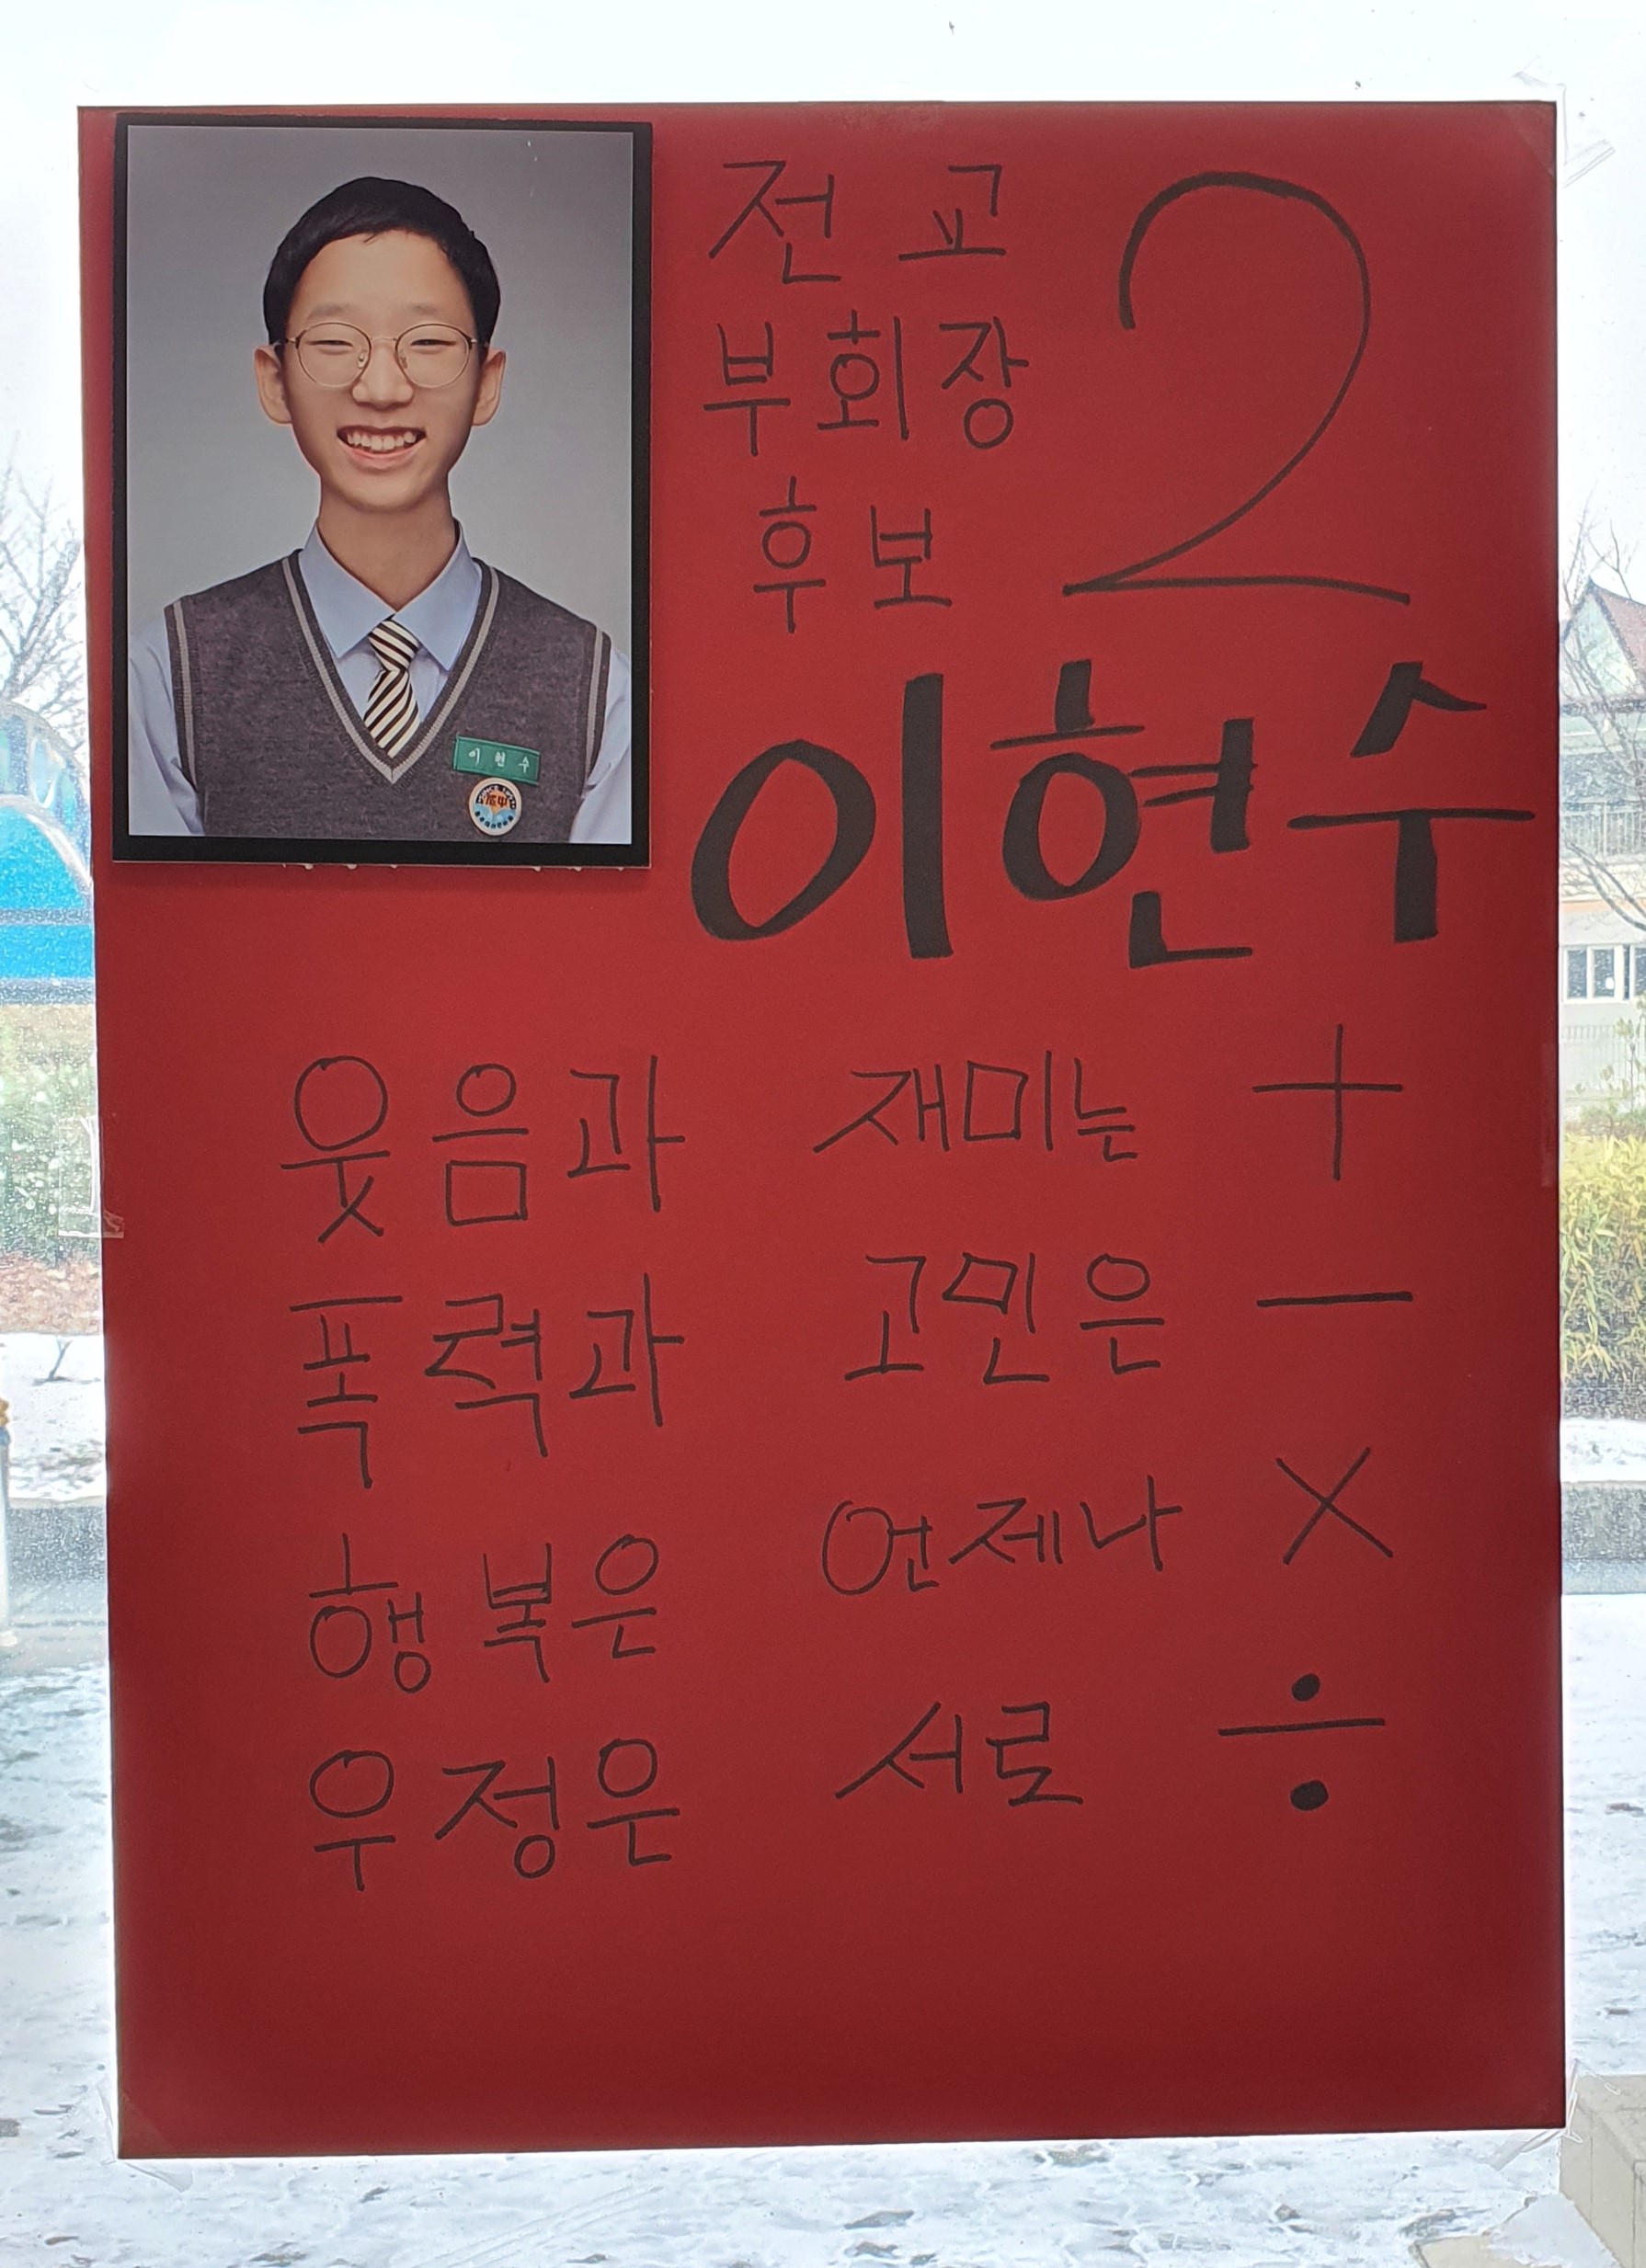 전교
부회장
후보
2
이현수
이현수
웃음과 재미는 +
폭력과 고민은 −
행복은 언제나 ×
우정은 서로 ÷